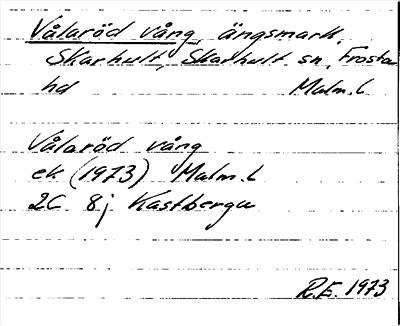 Vålaröd vång, ängsmark.
Skarhult, Skarhult sn, Frosta
hd Malm.L
Vålaröd vång
ek (1973) Malm.L
2C 8j Kastberga
R.E. 1973